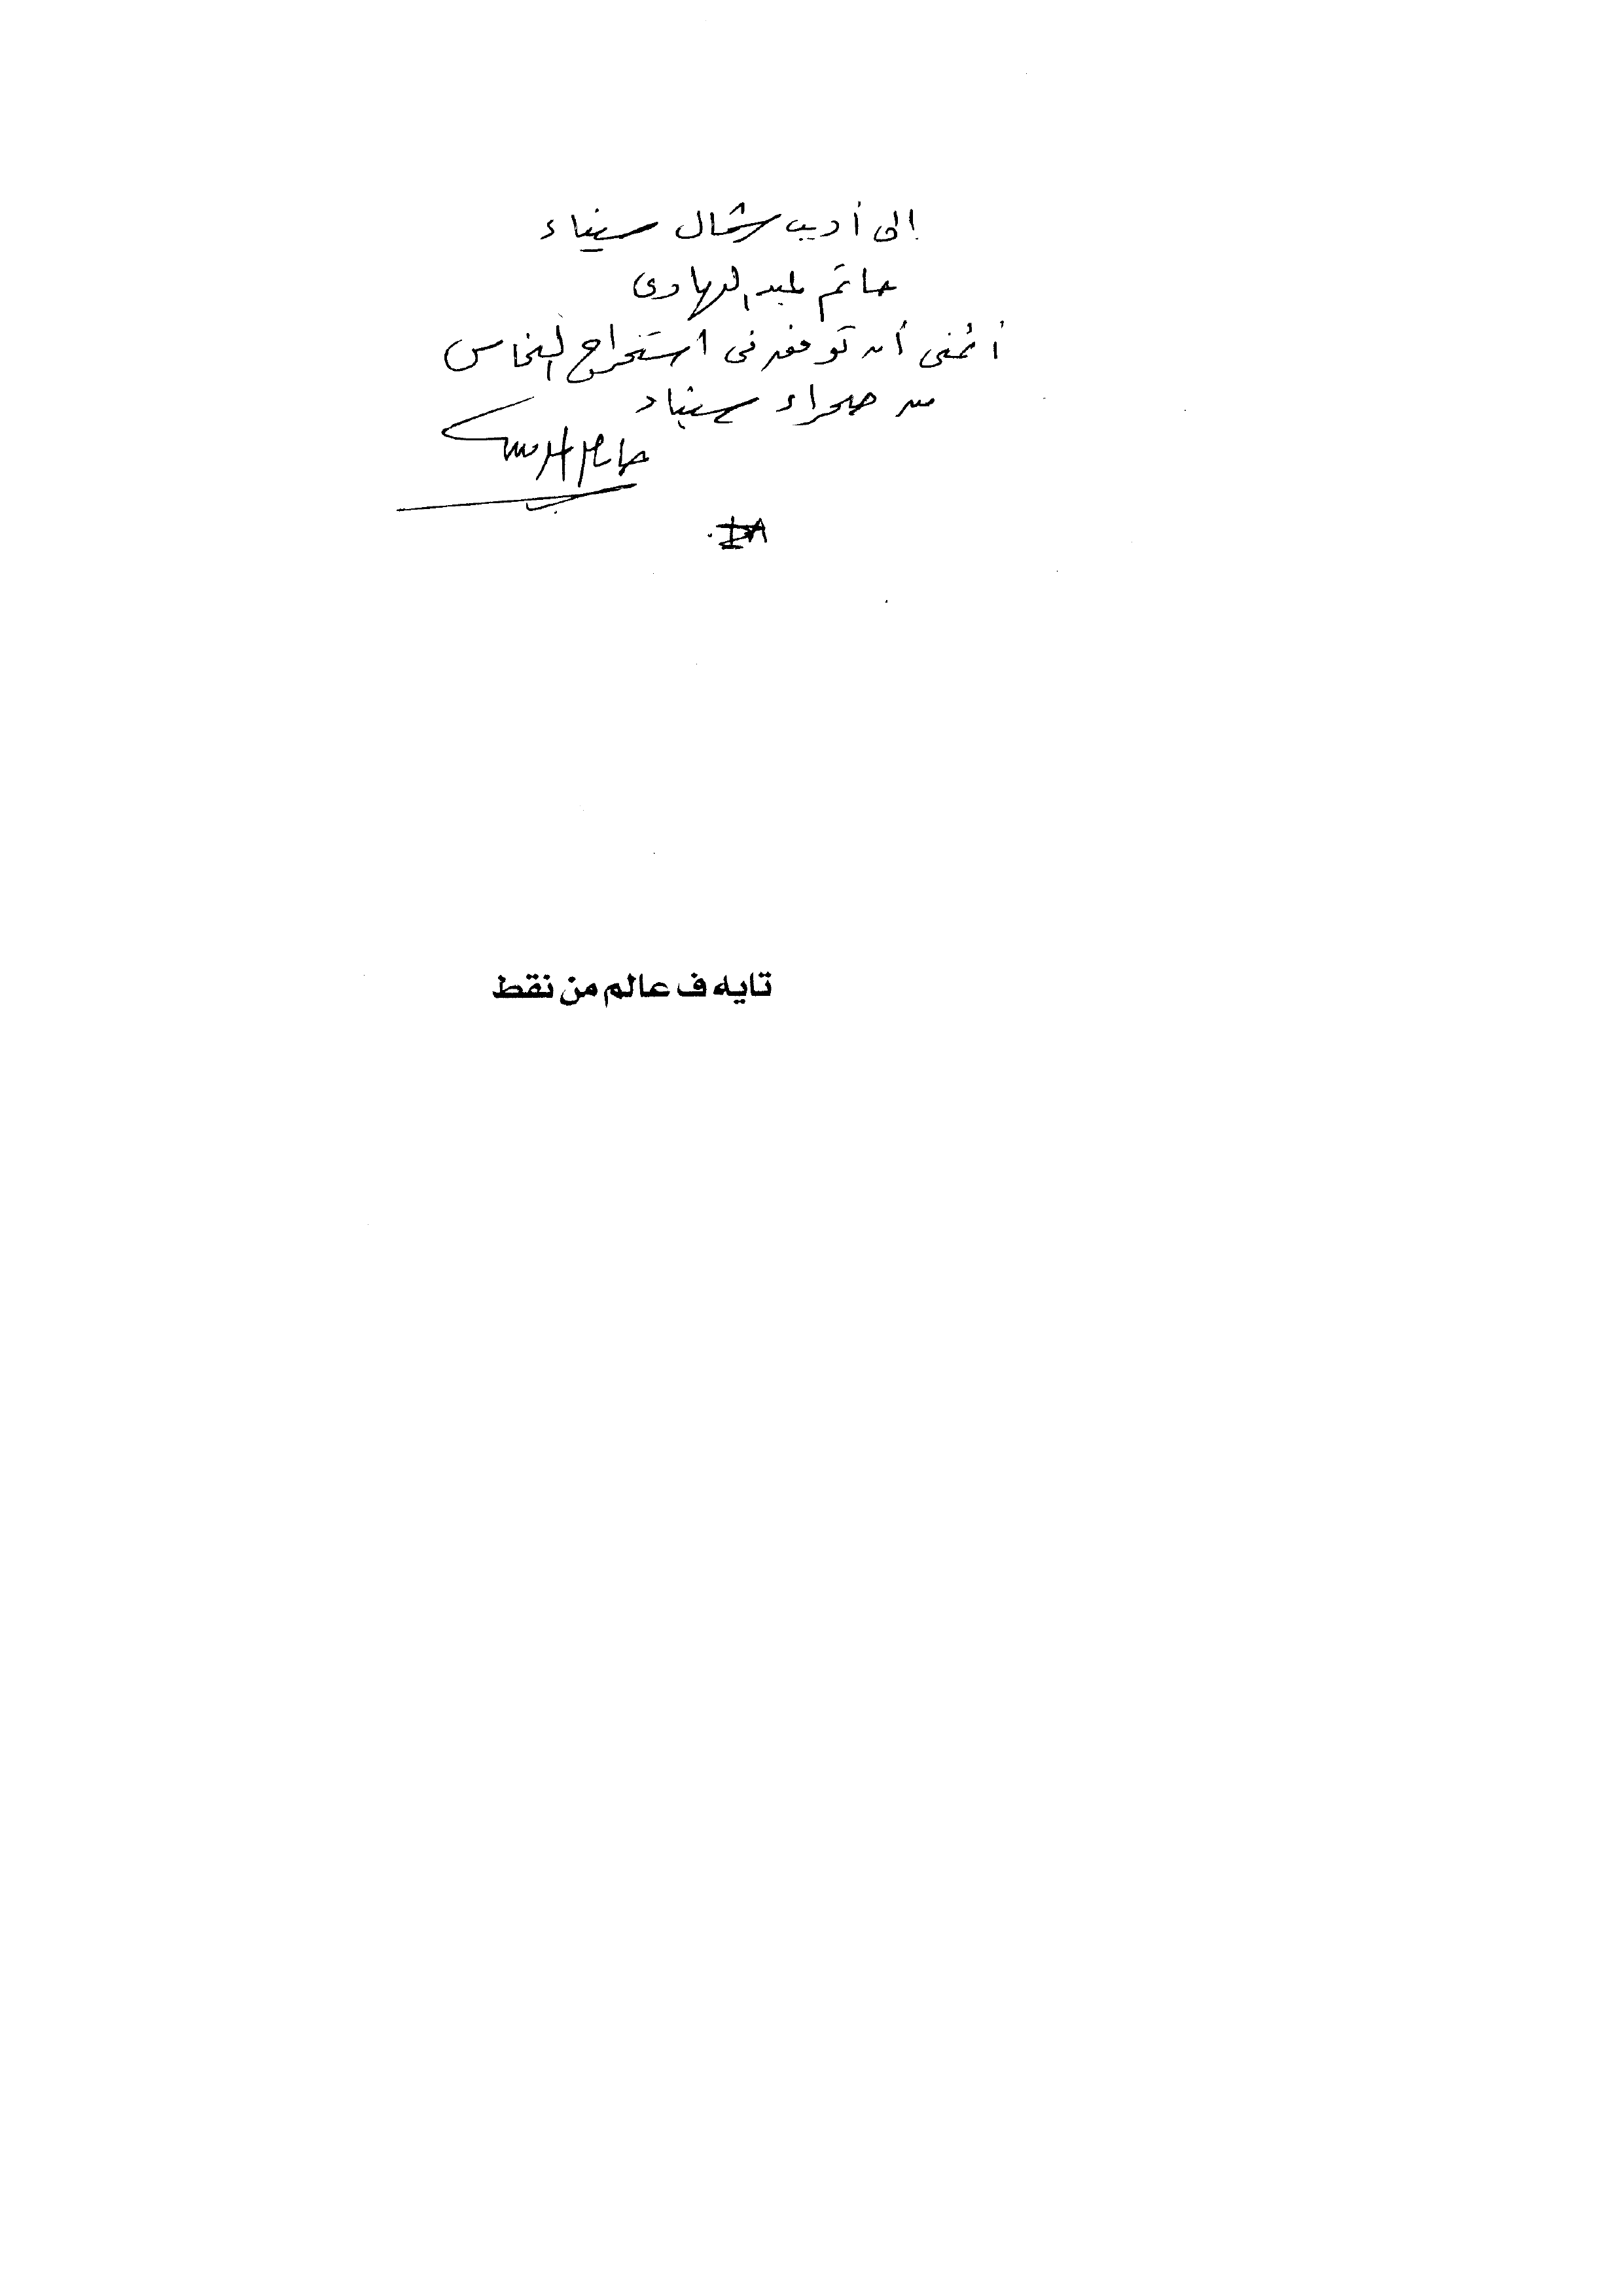 إلى أديب شمال سيناء
حاتم عبد الهادى
أتمنى أن توفق فى استخراج النحاس
من صحراء سيناء
تايه ف عالم من نقط